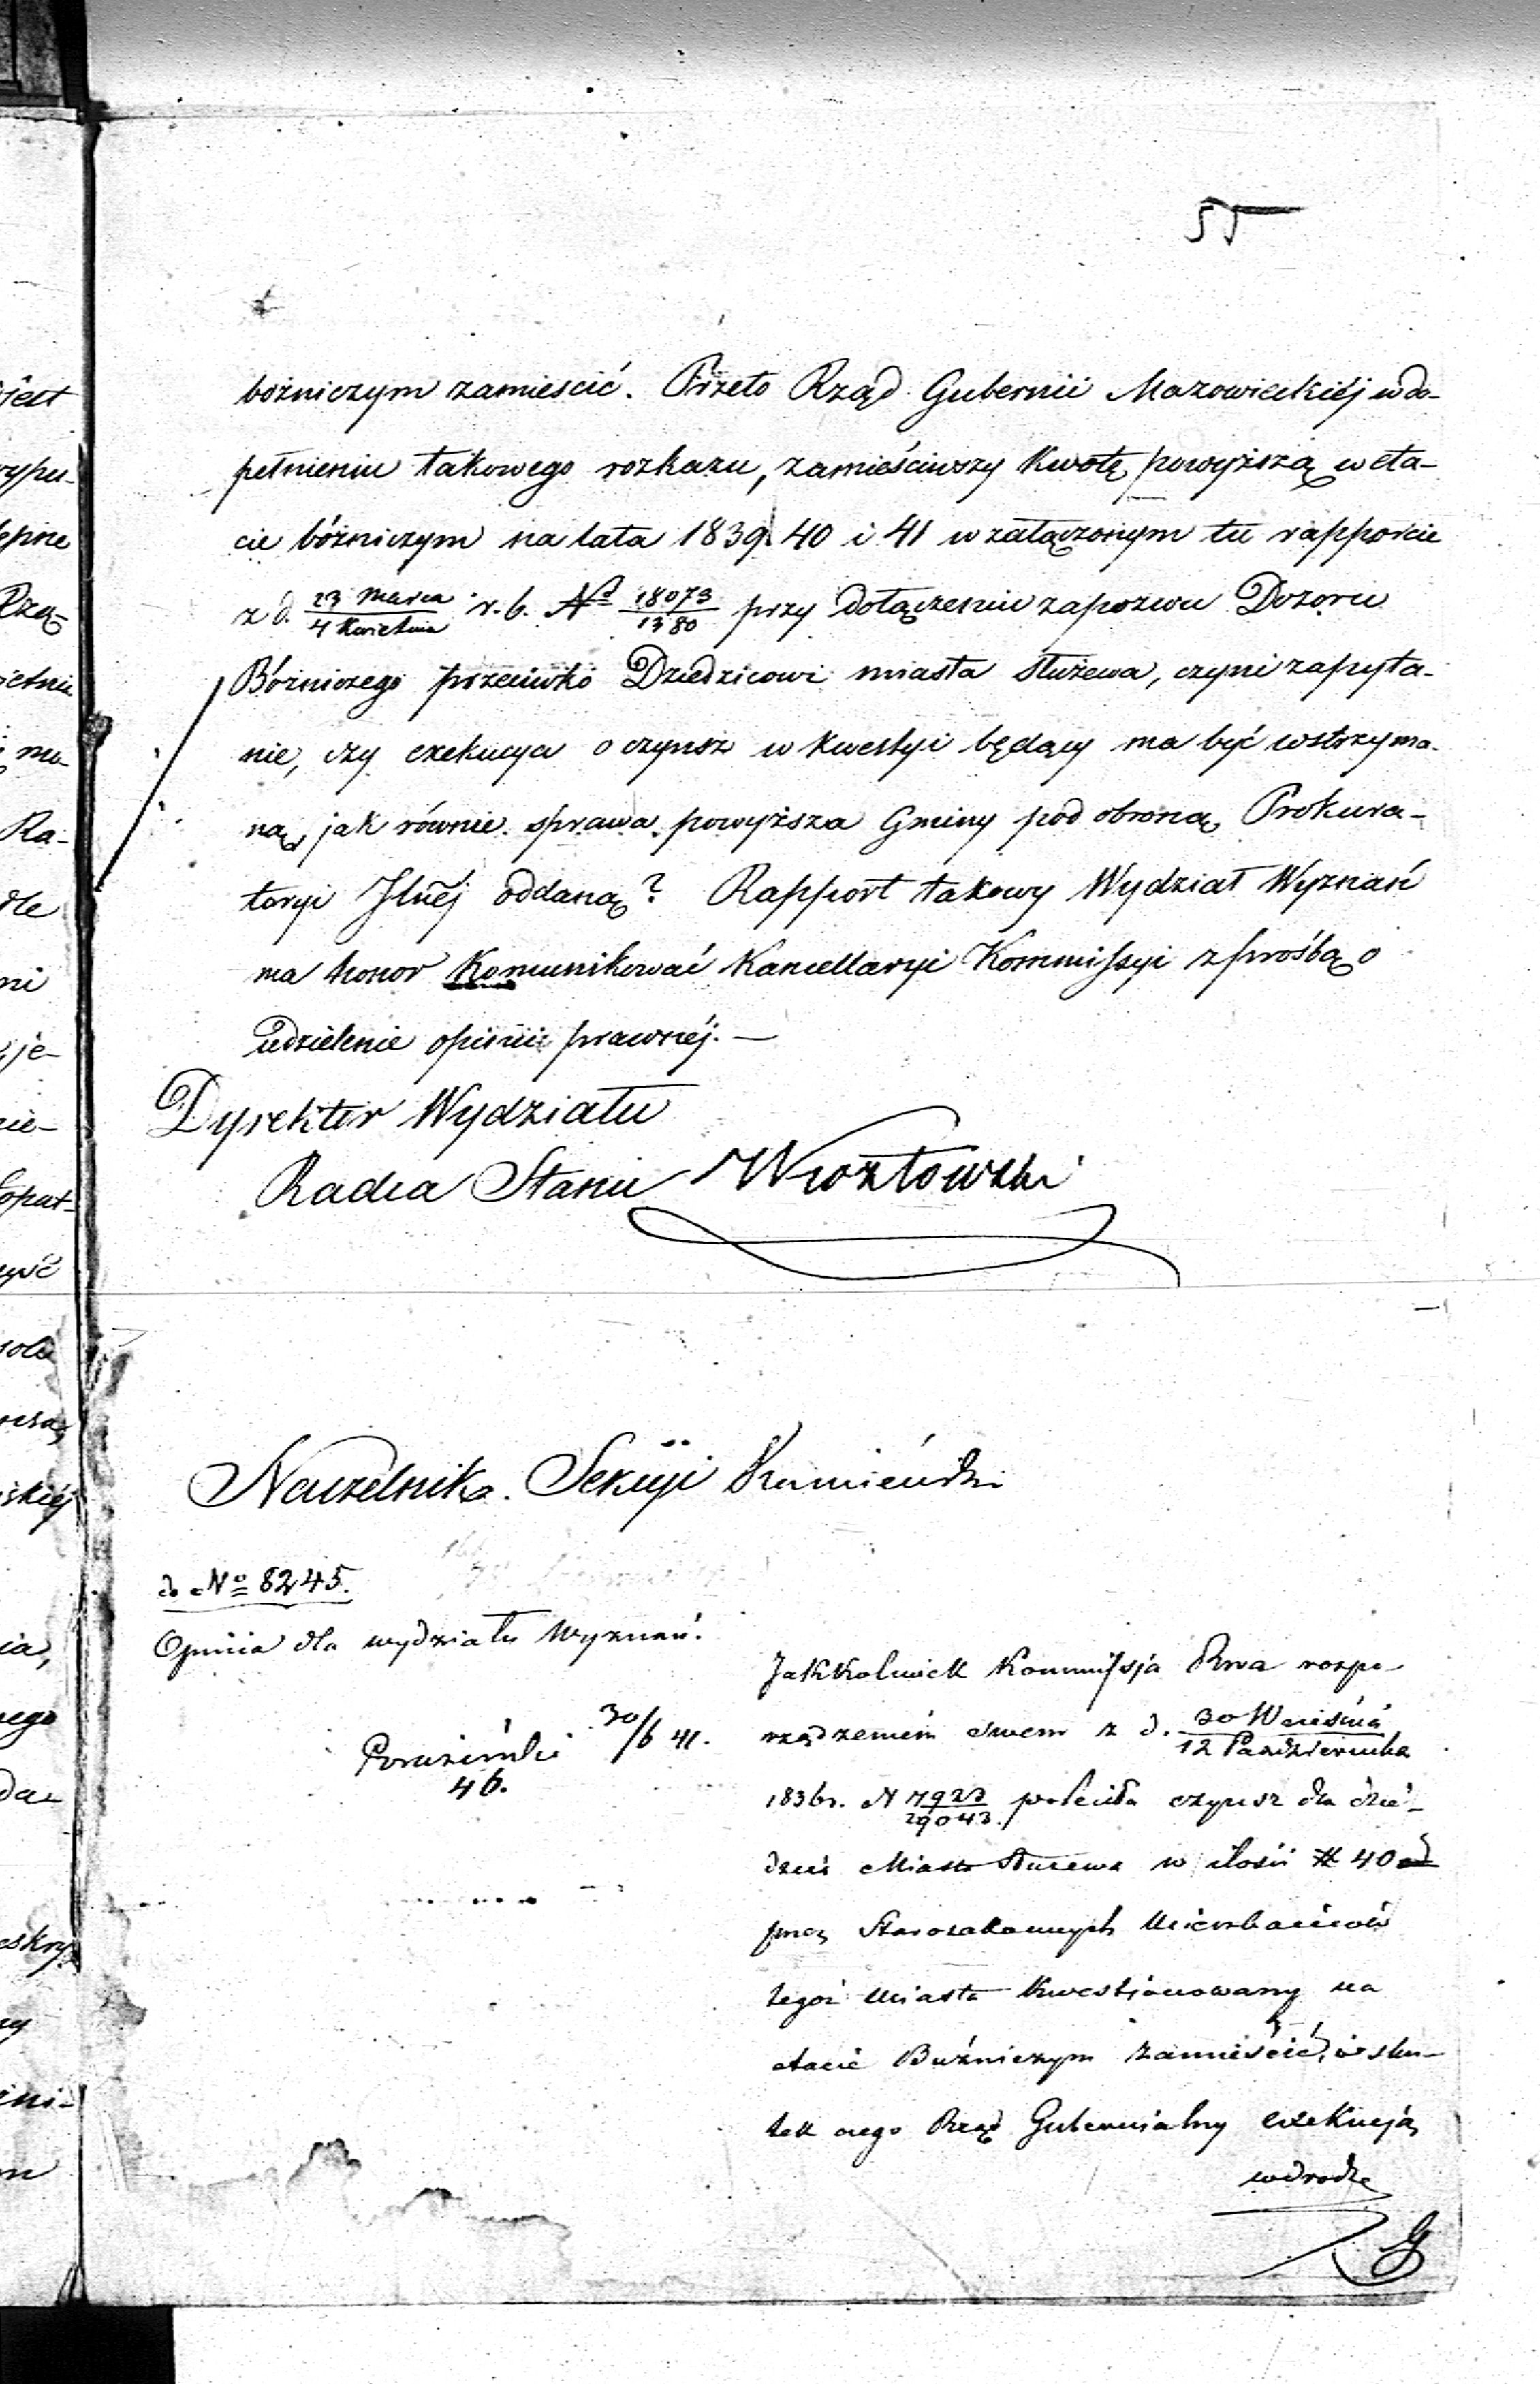 55
bożniczym zamieścić. Przeto Rząd Gubernii Mazowieckiéj w do-
pełnieniu takowego rozkazu, zamieściwszy kwotę powyższą w eta-
cie bóżniczym na lata 1839. 40 i 41 w załączonym tu rapporcie
z d. 23 Marca / 4 Kwietnia r. b. No 18073 / 1380 przy dołączeniu zapozwu Dozoru
Bóżniczego przeciwko Dziedzicowi miasta Służewa, czyni zapyta-
nie, czy exekucya o czynsz w kwestyi będący ma być wstrzyma-
ną, jak równie sprawa powyższa Gminy pod obroną Prokura-
toryi Jlnéj oddaną? Rapport takowy Wydział Wyznań
ma honor Komunikować Kancellaryi Kommissyi z prośbą o
udzielenie opinii prawnéj. —
Dyrektor Wydziału
Radca Stanu
Naczelnik Sekcyi
do No 8245.
Opinia dla wydziału Wyznań.
30/6 41.
46.
Jakkolwiek Kommissja Rwa rozpo-
rządzeniem swem z d. 30 Września / 12 Października
1836 r. N 7923 / 29043. poleciła czynsz dla dzie-
dzica Miasta Służewa w ilości # 40
przez Starozakonnych Mieszkańców
tegoż Miasta kwestjonowany na
etacie Bużniczym zamieścić, w sku-
tek czego Rząd Gubernialny exekucją
wdrożę